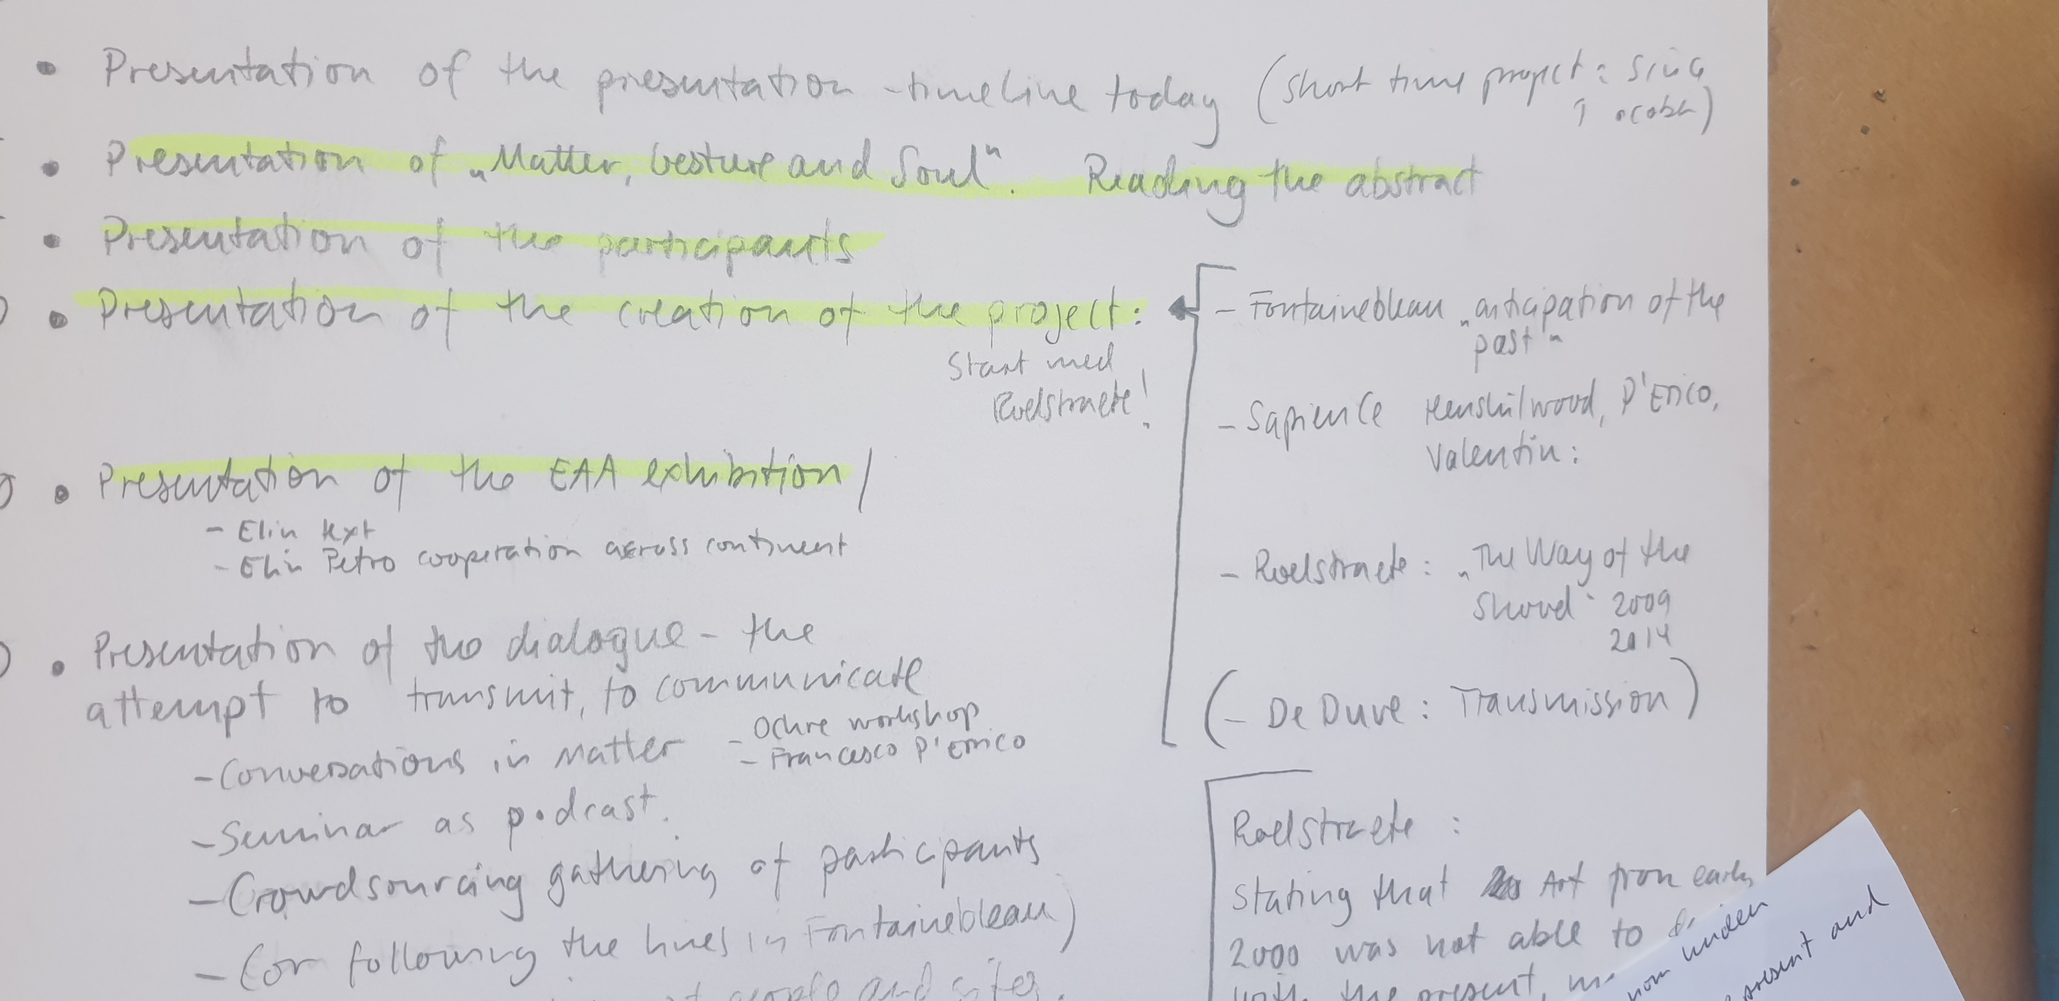 • Presentation of the presentation - timeline today (short time project: since
october)
• Presentation of „Matter, Gesture and Soul". Reading the abstract
• Presentation of the participants
• Presentation of the creation of the project:
Start med
Roelstraete!
• Presentation of the EAA exhibition/
- Elin text
- Elin Petro cooperation across continent
• Presentation of the dialogue - the
attempt to transmit, to communicate
- Conversations in Matter
- Ochre workshop
- Francesco D'Errico
- Seminar as podcast.
- Crowdsourcing gathering of participants
- (or following the lines in Fontainebleau)
people and sites.
- Fontainebleau „anticipation of the
past"
- Sapience Henshilwood, D'Erico,
Valentin:
- Roelstraete: „The Way of the
Shovel" 2009
2014
(- De Duve: Transmission)
Roelstraete:
Stating that Art from early
2000 was not able to
with the present,
present and